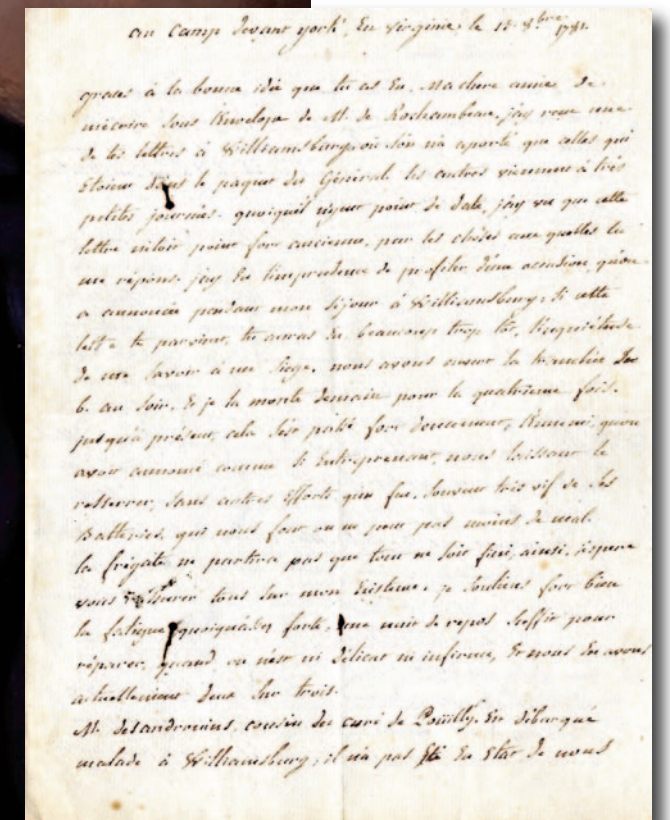 au Camp devant york, En virginie, le 15. 8.bre 1781.
graces à la bonne idée que tu as Eu, Ma chere amie, de
m'ecrire sous l'Envelope de M. de Rochambeau, j'ay reçu une
de tes lettres à Williamsburg, où l'on n'a aporté que celles qui
Etoient dans le paquet du Général. les autres viennent à très
petites journées. quoiqu'il n'y eut point de date, j'ay vu que cette
lettre n'étoit point fort ancienne, par les choses aux quelles tu
me réponds. j'ay Eu l'imprudence de profiter d'une occasion qu'on
a annoncée pendant mon séjour à Williamsburg; si cette
lettre te parvient, tu auras Eu beaucoup trop tôt, l'inquiétude
de me savoir à un siege. nous avons ouvert la tranchée le
6. au soir, & je la monte demain pour la quatrieme fois.
jusqu'à présent, cela s'est passé fort doucement; l'Ennemi, qu'on
avoit annoncé comme si Entreprenant, nous laissant le
resserrer, sans autres Efforts que feu, souvent très vif de ses
Batteries, qui nous font on ne peut pas moins de mal.
la frégate ne partira pas que tout ne soit fini, ainsi, j'espere
vous rassurer tous sur mon Existence. je soutiens fort bien
la fatigue quoiqu'assés forte, une nuit de repos suffit pour
réparer, quand on n'est ni délicat ni infirme, Et nous En avons
actuellement deux sur trois.
M. desandrouins, cousin du curé de Pouilly, En débarqué
malade à Williamsburg; il n'a pas Eté En Etat de nous